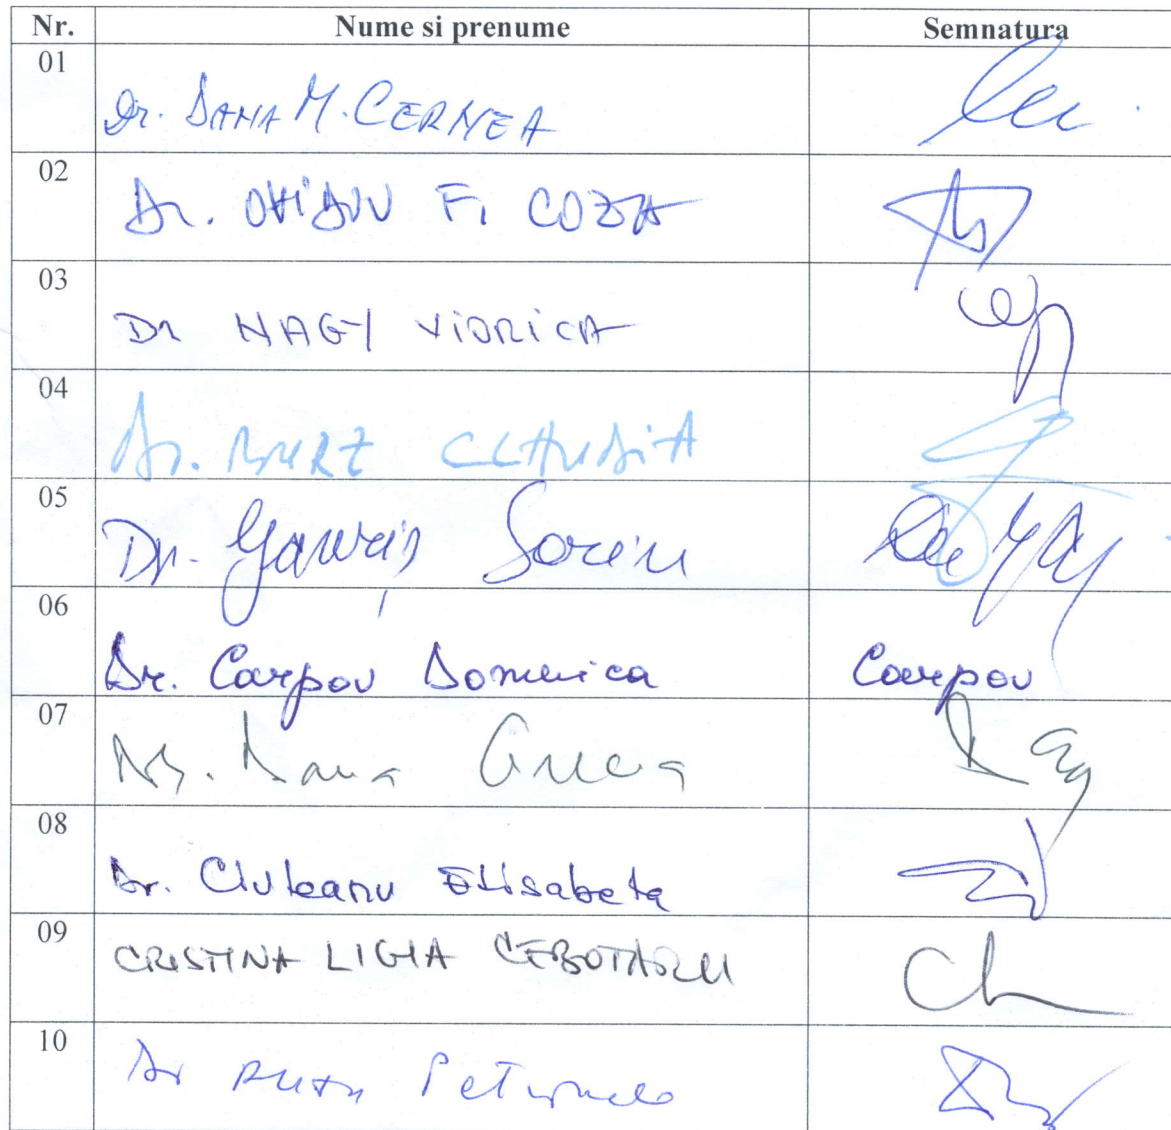 Nr. Nume si prenume Semnatura
01 Dr. DANA M. CERNEA
02 Dr. OVIDIU F. COZA
03 Dr NAGY VIORICA
04 Dr. BURZ CLAUDIA
05 Dr. Sorin
06 Dr. Carpov Domnica Carpov
07 Dr. Dana
08 Dr. Cluteanu Elisabeta
09 CRISTINA LIGIA CEBOTARU
10 Dr